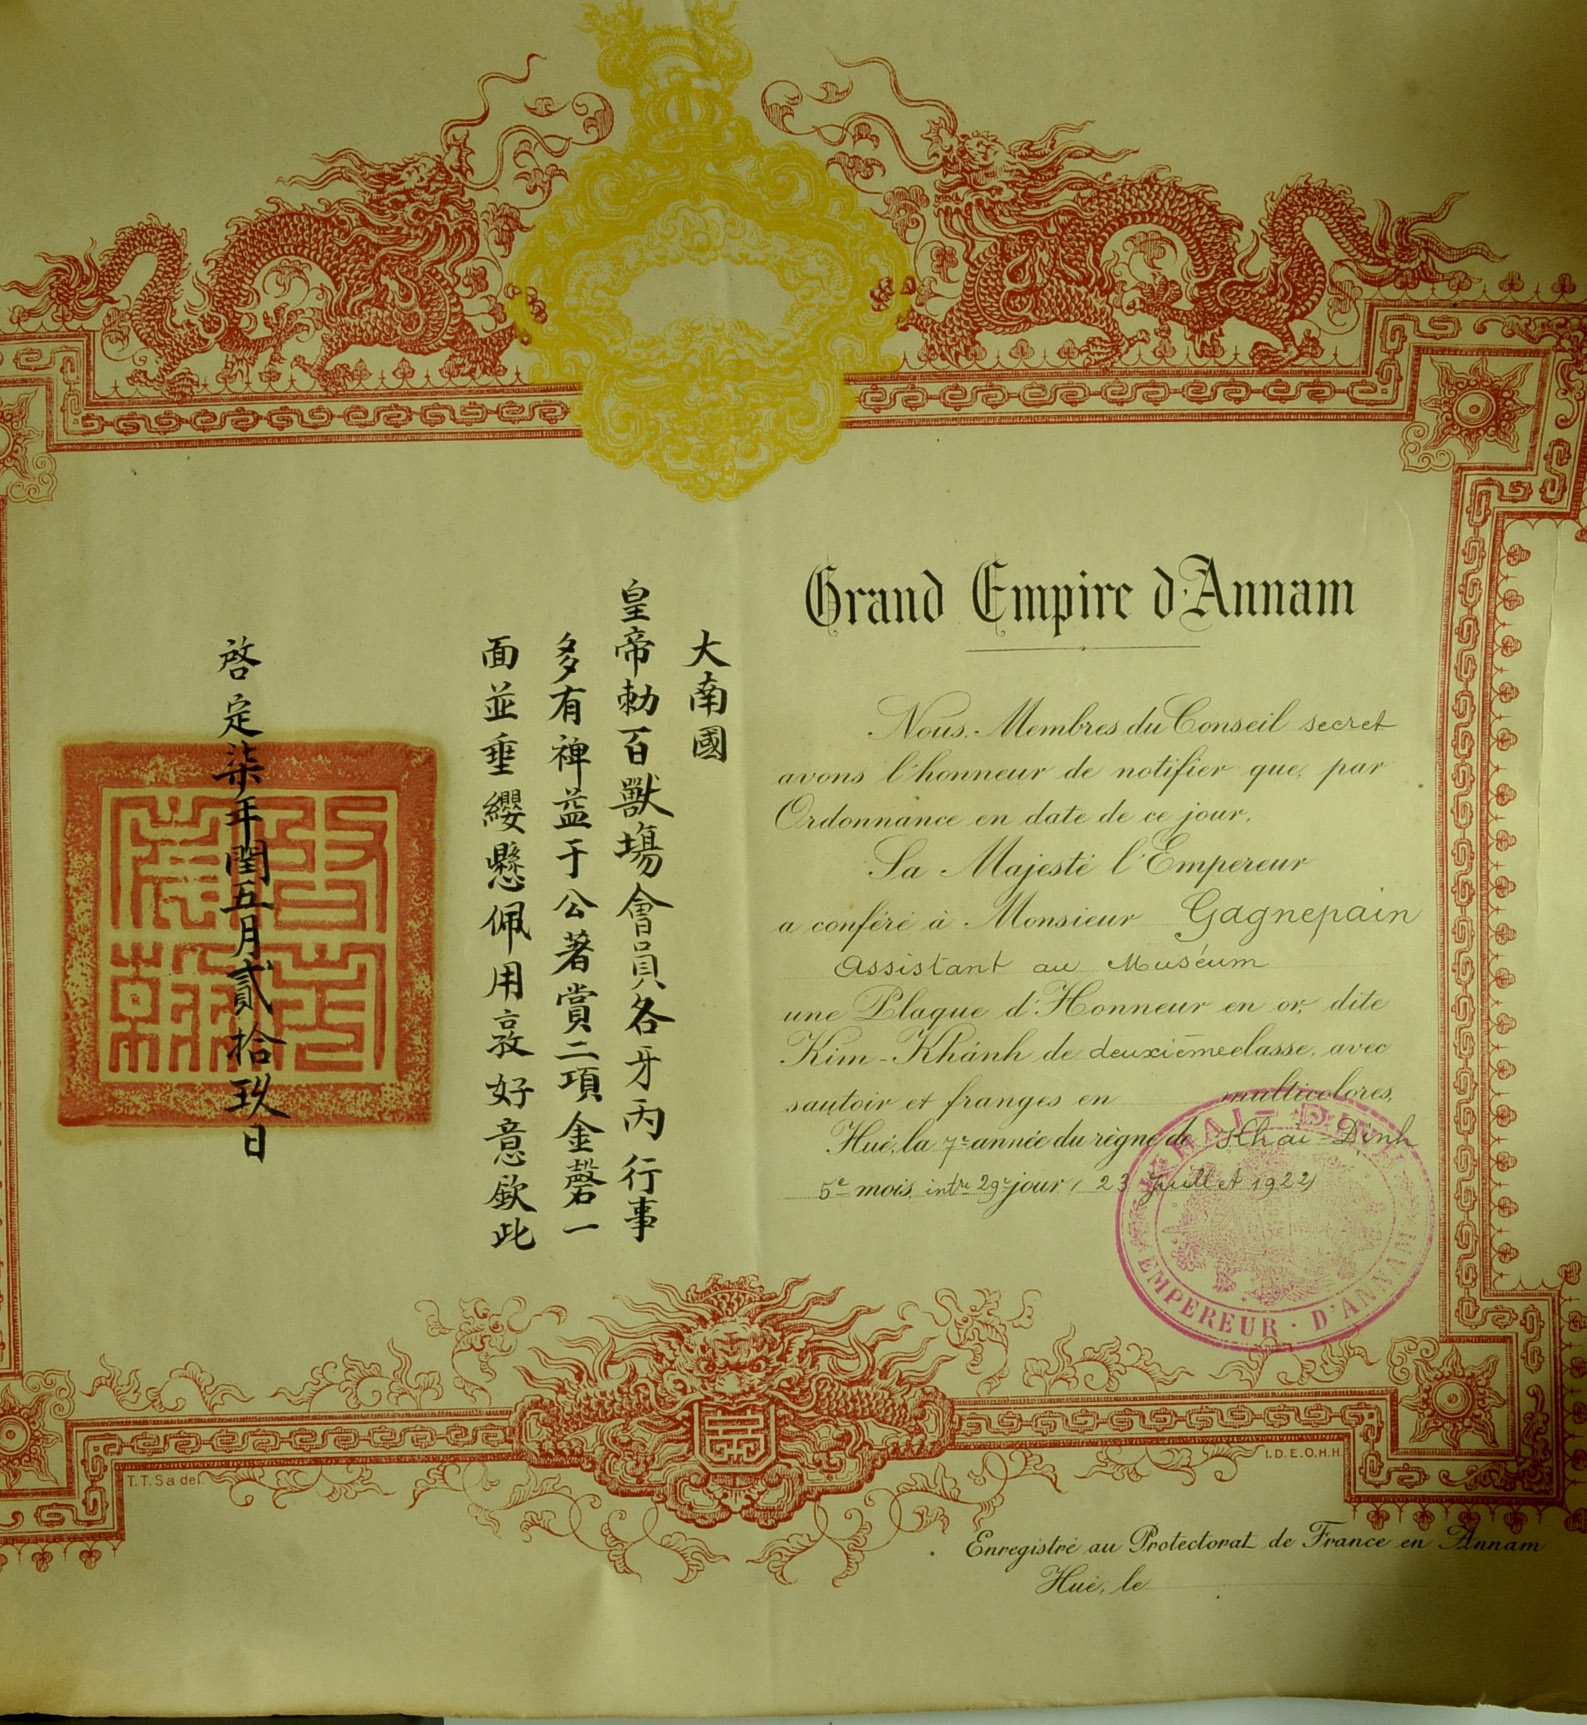 Grand Empire d'Annam
Nous, Membres du Conseil secret
avons l'honneur de notifier que, par
Ordonnance en date de ce jour,
Sa Majesté l'Empereur
a conféré à Monsieur Gagnepain
Assistant au Muséum
une Plaque d'Honneur en or, dite
Kim-Khánh de deuxième classe, avec
sautoir et franges en multicolores,
Hué, la 7e année du règne de Khai-Dinh
5e mois intre 29e jour (23 Juillet 1922)
KHAI-DINH
EMPEREUR · D'ANNAM
大南國
皇帝勅百獸場會員各牙丙行事
多有裨益于公著賞二項金磬一
面並垂纓懸佩用敦好意欽此
啓定柒年閏五月貳拾玖日
T.T.Sa del.
I.D.E.O.H.H.
Enregistré au Protectorat de France en Annam
Hué, le